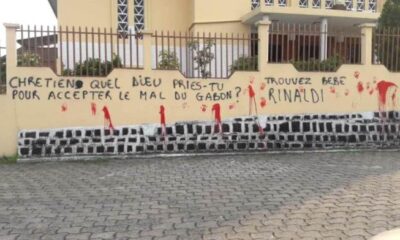 CHRETIENO QUEL DIEU PRIES-TU
POUR ACCEPTER LE MAL DU GABON?
TROUVEZ BEBE
RINALDI